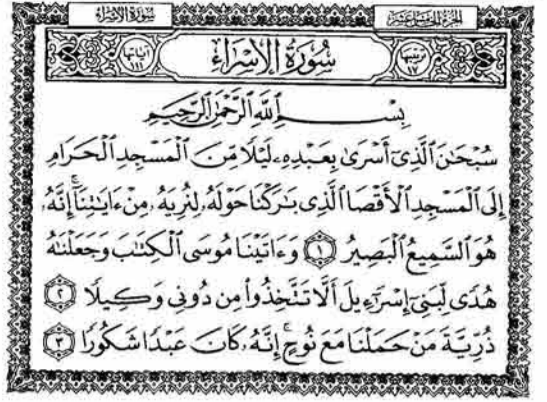 سُورَةُ الإِسْرَاءِ
الجزء الخامس عشر
آياتها ١١١
سُورَةُ الإِسْرَاءِ
ترتيبها ١٧
بِسْمِ ٱللَّهِ ٱلرَّحْمَٰنِ ٱلرَّحِيمِ
سُبْحَٰنَ ٱلَّذِىٓ أَسْرَىٰ بِعَبْدِهِۦ لَيْلًا مِّنَ ٱلْمَسْجِدِ ٱلْحَرَامِ
إِلَى ٱلْمَسْجِدِ ٱلْأَقْصَا ٱلَّذِى بَٰرَكْنَا حَوْلَهُۥ لِنُرِيَهُۥ مِنْ ءَايَٰتِنَآ ۚ إِنَّهُۥ
هُوَ ٱلسَّمِيعُ ٱلْبَصِيرُ ۝١ وَءَاتَيْنَا مُوسَى ٱلْكِتَٰبَ وَجَعَلْنَٰهُ
هُدًى لِّبَنِىٓ إِسْرَٰٓءِيلَ أَلَّا تَتَّخِذُوا۟ مِن دُونِى وَكِيلًا ۝٢
ذُرِّيَّةَ مَنْ حَمَلْنَا مَعَ نُوحٍ ۚ إِنَّهُۥ كَانَ عَبْدًا شَكُورًا ۝٣